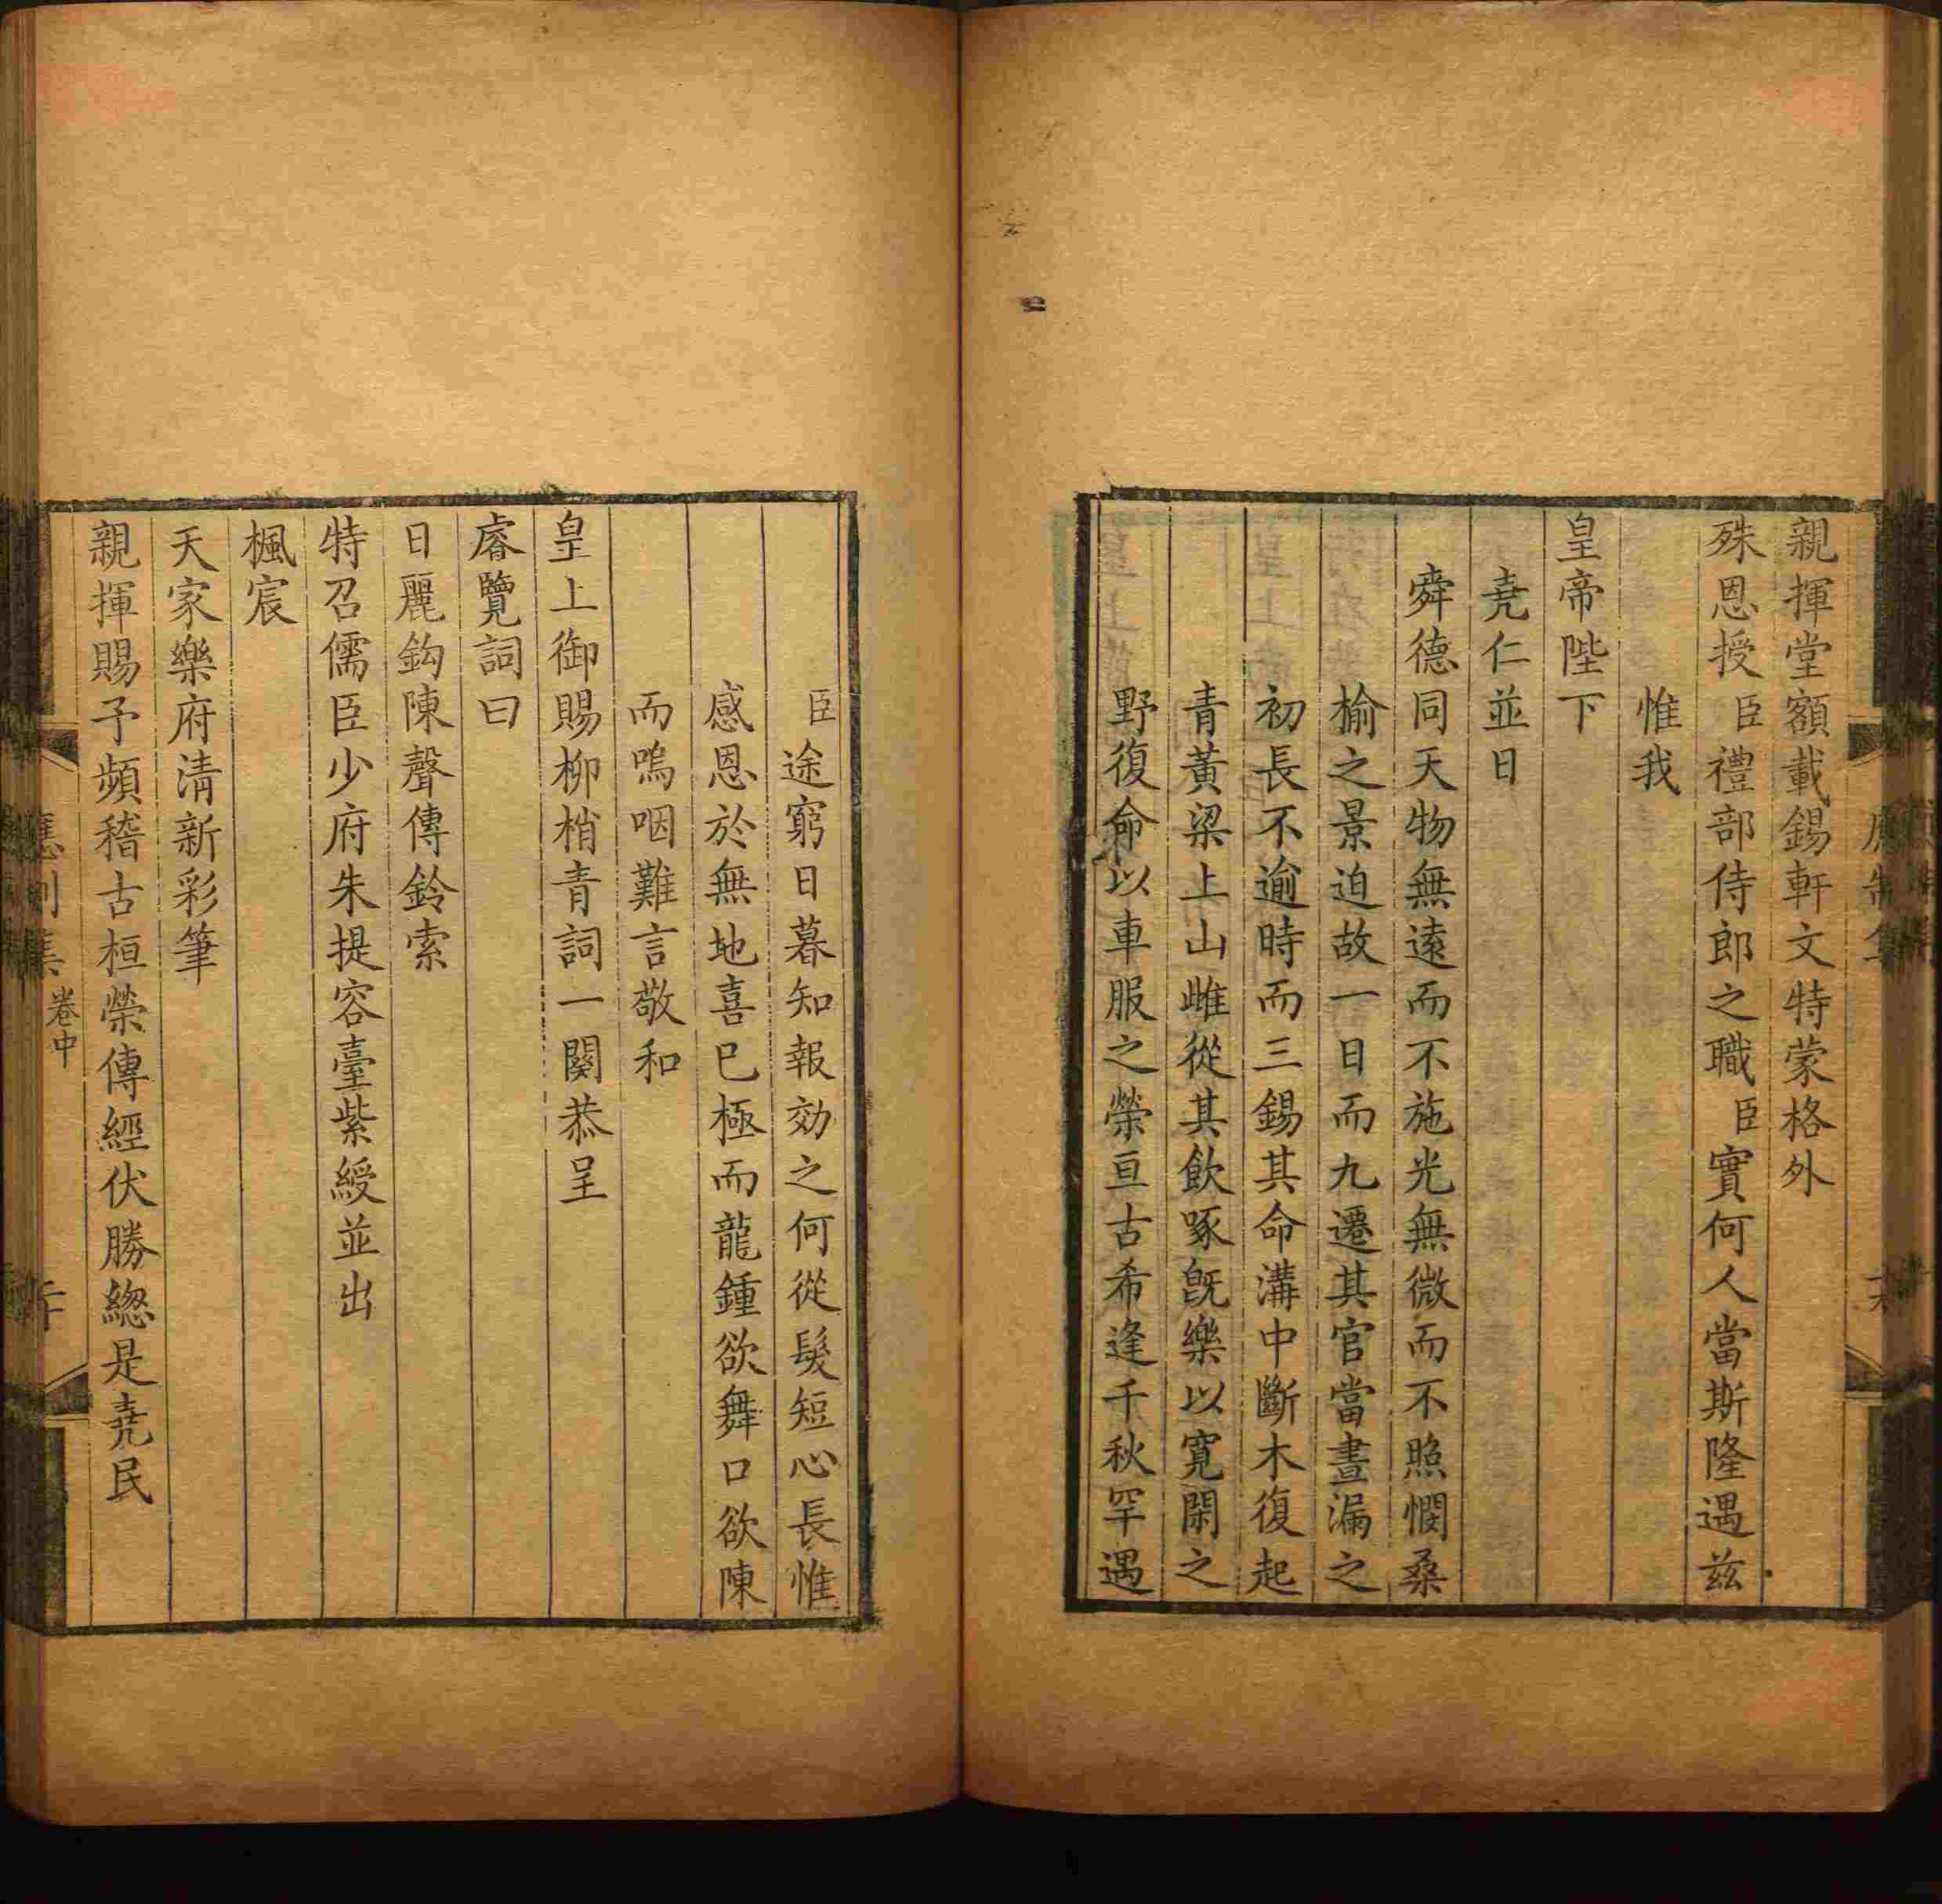 親揮堂額載錫軒文特蒙格外
殊恩授臣禮部侍郎之職臣實何人當斯隆遇茲
惟我
皇帝陛下
堯仁並日
舜德同天物無遠而不施光無微而不照憫桑
榆之景迫故一日而九遷其官當晝漏之
初長不逾時而三錫其命溝中斷木復起
青黃梁上山雌從其飲啄旣樂以寬閑之
野復命以車服之榮亘古希逢千秋罕遇
臣途窮日暮知報効之何從髮短心長惟
感恩於無地喜已極而龍鍾欲舞口欲陳
而嗚咽難言敬和
皇上御賜柳梢青詞一闋恭呈
睿覽詞曰
日麗鈎陳聲傳鈴索
特召儒臣少府朱提容臺紫綬並出
楓宸
天家樂府清新彩筆
親揮賜予頻稽古桓榮傳經伏勝緫是堯民
卷中